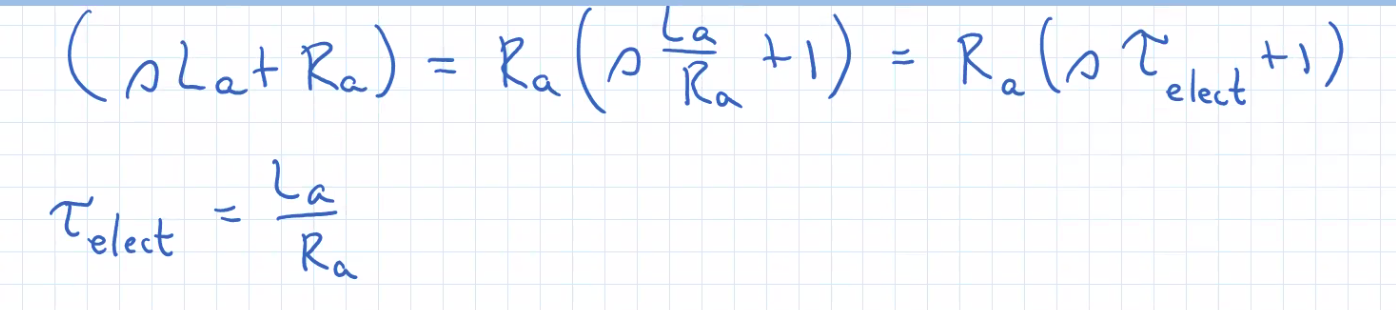 (sLa + Ra) = Ra(s La/Ra + 1) = Ra(s τelect + 1)
τelect = La/Ra